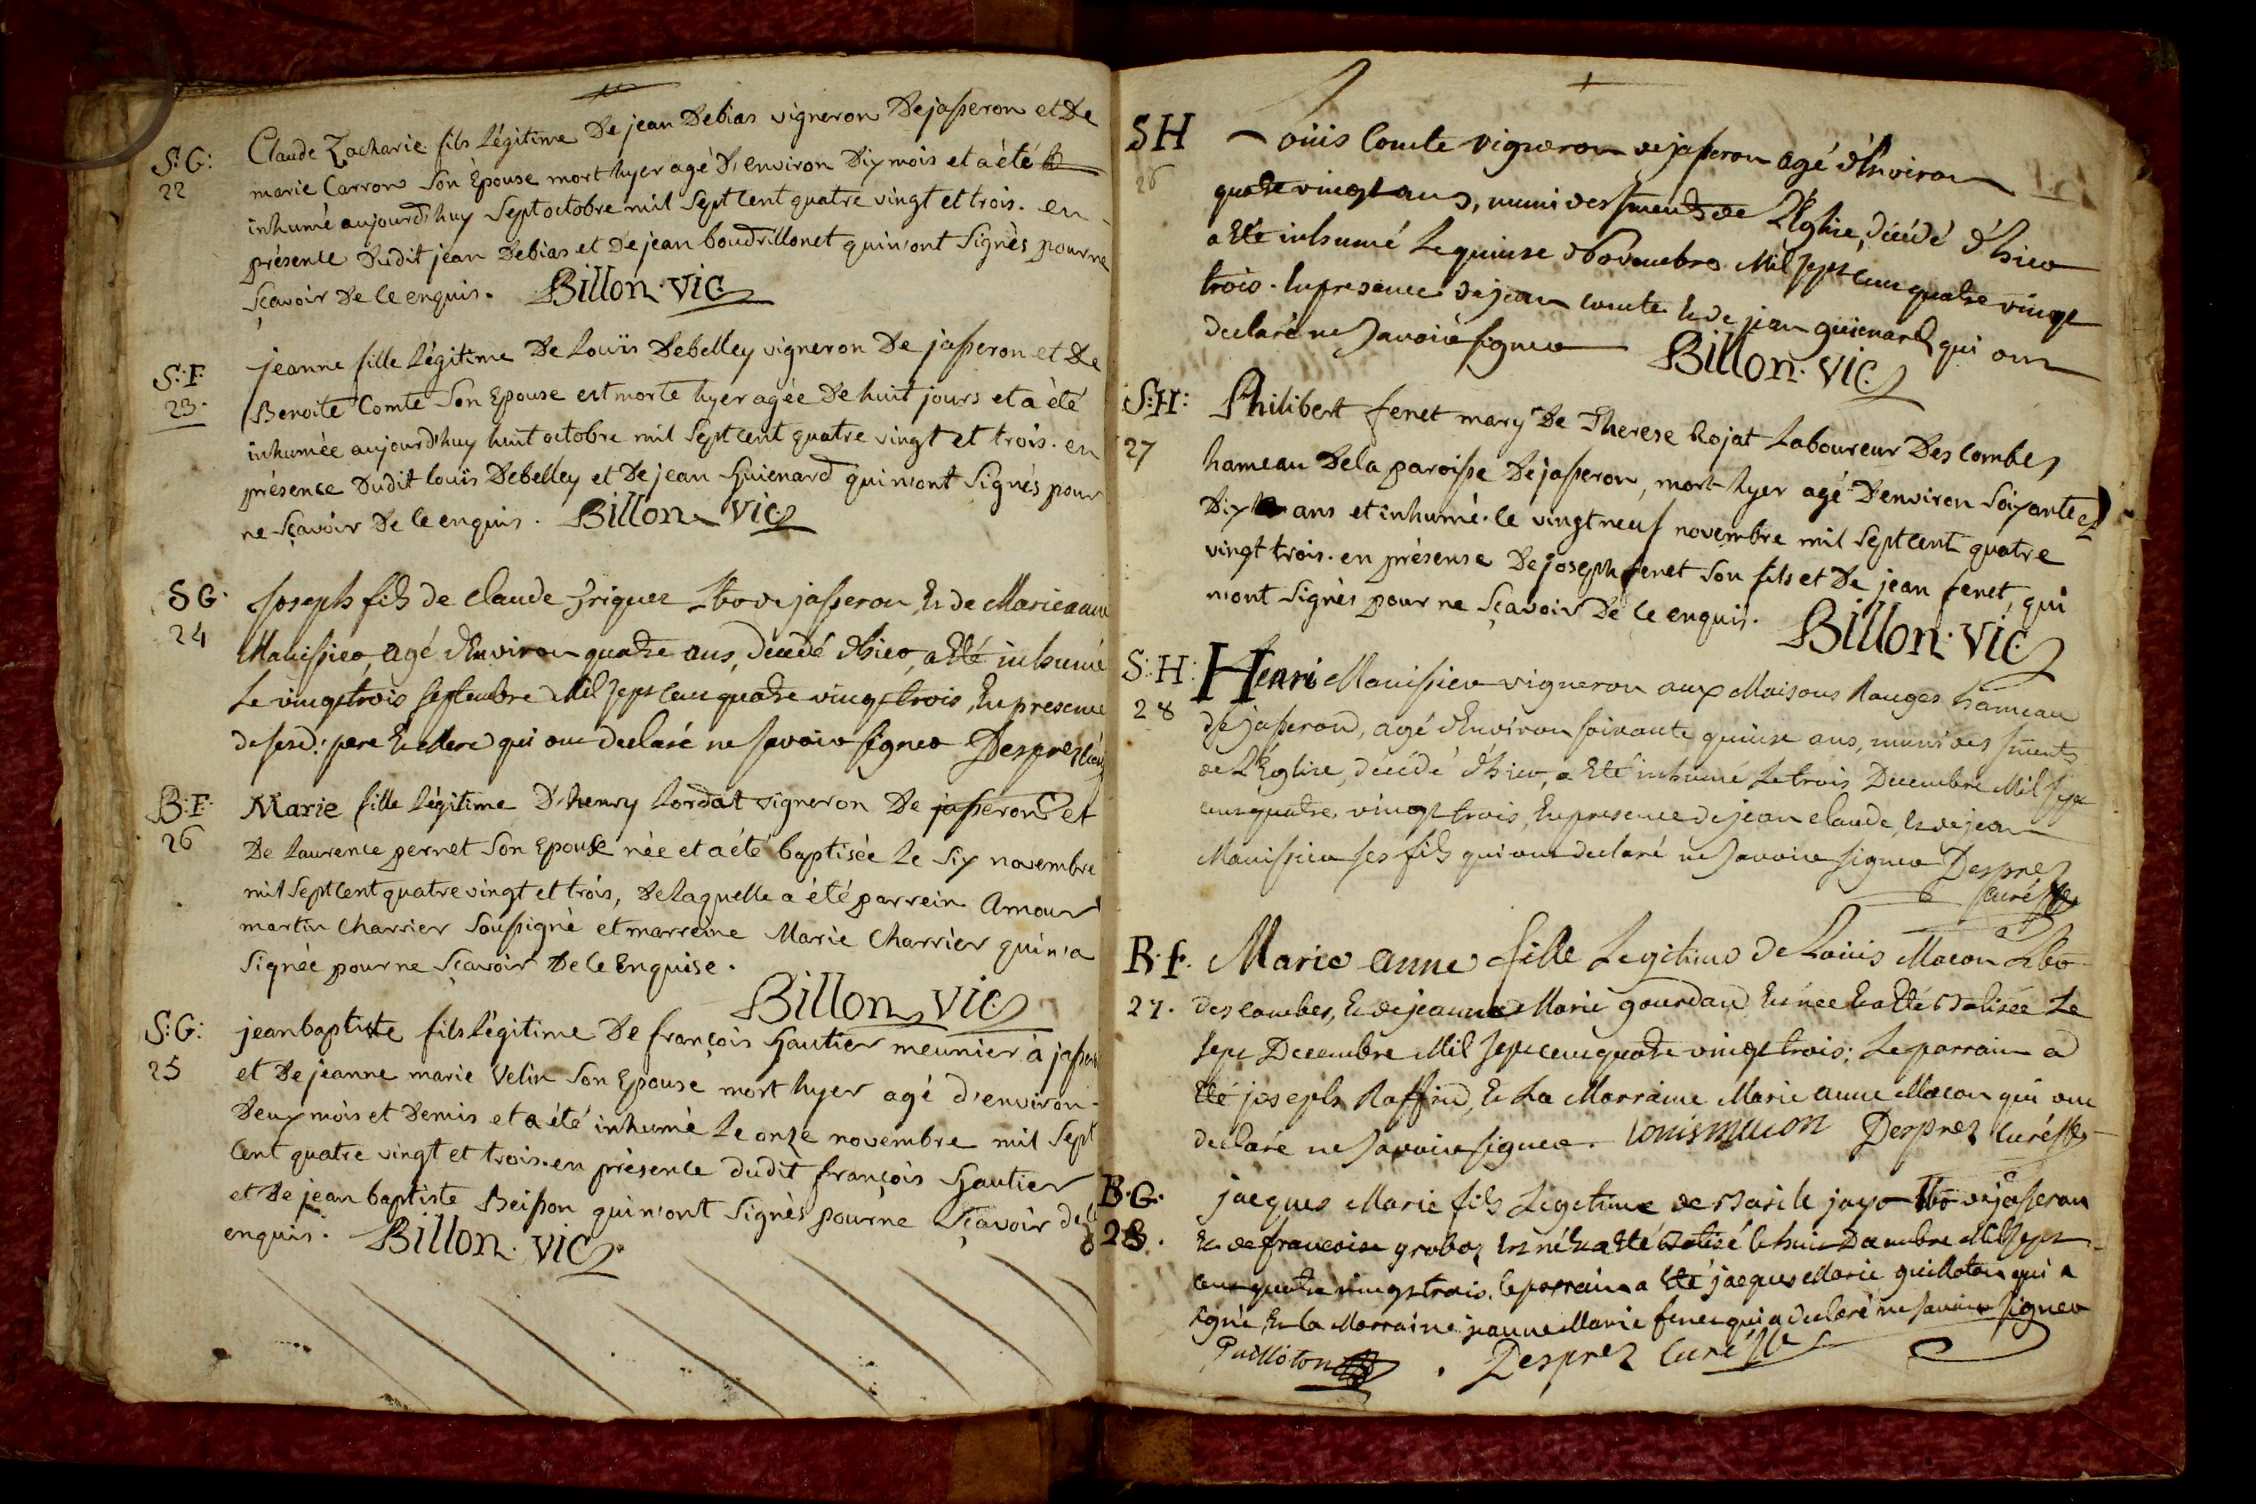 S:G:
22
Claude Zacharie fils légitime De jean Debias vigneron De jasseron et De
marie Carron Son Epouse mort hyer agé D'environ Dix mois et a été
inhumé aujourd'huy Sept octobre mil Sept Cent quatre vingt et trois. en
présence Dudit jean Debias et De jean boudrillonet qui n'ont Signès pour ne
Sçavoir De Ce enquis. Billon. Vic.
S:F:
23.
jeanne fille légitime De Louïs Debelley vigneron De jasseron et De
Benoite Comte Son Epouse est morte hyer agée De huit jours et a été
inhumée aujourd'huy huit octobre mil Sept cent quatre vingt et trois. en
présence Dudit louïs Debelley et De jean Guienard qui n'ont Signès pour
ne Sçavoir De Ce enquis. Billon Vic
SG.
24
Joseph fils de Claude Lbo de jasseron, Et de Marieanne
Manissier, agé d'Environ quatre ans, décedé d'hier, a Eté inhumé
Le vingt trois Septembre Mil Sept Cent quatre vingt trois, En presence
de sesd. pere Et Mere qui ont declaré ne savoir signer Desprez Curé
B:F:
26
Marie fille légitime D'henry Lordat vigneron De jasseron et
De Laurence pernet Son Epouse née et a été baptisée Le Six novembre
mil Sept Cent quatre vingt et trois, De laquelle a été parrein Amour
martin Charrier Soussigné et marreine Marie Charrier qui n'a
Signée pour ne Sçavoir De Ce Enquise.
Billon Vic
S:G:
25
jean baptiste fils légitime De françois Gautier meunier à jasseron
et De jeanne marie Velin Son Epouse mort hyer agé d'environ
Deux mois et Demis et a été inhumé Le onze novembre mil Sept
Cent quatre vingt et trois. en présence dudit françois Gautier
et De jean baptiste Beisson qui n'ont Signès pour ne Sçavoir de ce
enquis. Billon. Vic.
SH
26
Louis Comte vigneron de jasseron agé d'Environ
quatre vingt ans, muni des sments de L'Eglise, décédé d'hier
a Eté inhumé Le quinze Novembre Mil Sept Cent quatre vingt
trois. En presence de jean Comte Et de jean guienard qui ont
declaré ne Savoir signer Billon. Vic.
S:H:
27
Philibert fenet mary De Therese Rojat Laboureur Des Combes
hameau De la paroisse De jasseron, mort hyer agé D'environ Soixante et
Dix ans et inhumé. le vingt neuf novembre mil Sept Cent quatre
vingt trois. en présense De joseph fenet Son fils et De jean fenet, qui
n'ont Signès pour ne Sçavoir De Ce enquis. Billon. Vic.
S:H:
28
Henri Manissier vigneron aux Maisons Rouges hameau
de jasseron, agé d'Environ soixante quinze ans, muni des sments
de L'Eglise, décédé d'hier, a Eté inhumé Le trois Decembre Mil Sept
cent quatre vingt trois, En presence de jean claude, Et de jean
Manissier ses fils qui ont declaré ne Savoir signer Desprez
Curé
B.f.
27.
Marie anne fille Legitime de Louis Macon Lbo
des combes, Et de jeanne Marie gourdan Est née Et a Eté Batisée Le
Sept Decembre Mil Sept cent quatre vingt trois: Le parrain a
Eté joseph Raffin, Et La Marraine Marie anne Macon qui ont
declaré ne Savoir signer. Louis macon Desprez Curé
B.G.
28.
jacques Marie fils Legitime de Basile jayr Lbo de jasseron
Et de francoise groboz Est né Et a Eté Batisé le huit Decembre Mil Sept
cent quatre vingt trois. le parrain a Eté jacques Marie guilloton qui a
signé, Et la Marraine jeanne Marie fenet qui a declaré ne Savoir signer
Guilloton. Desprez Curé